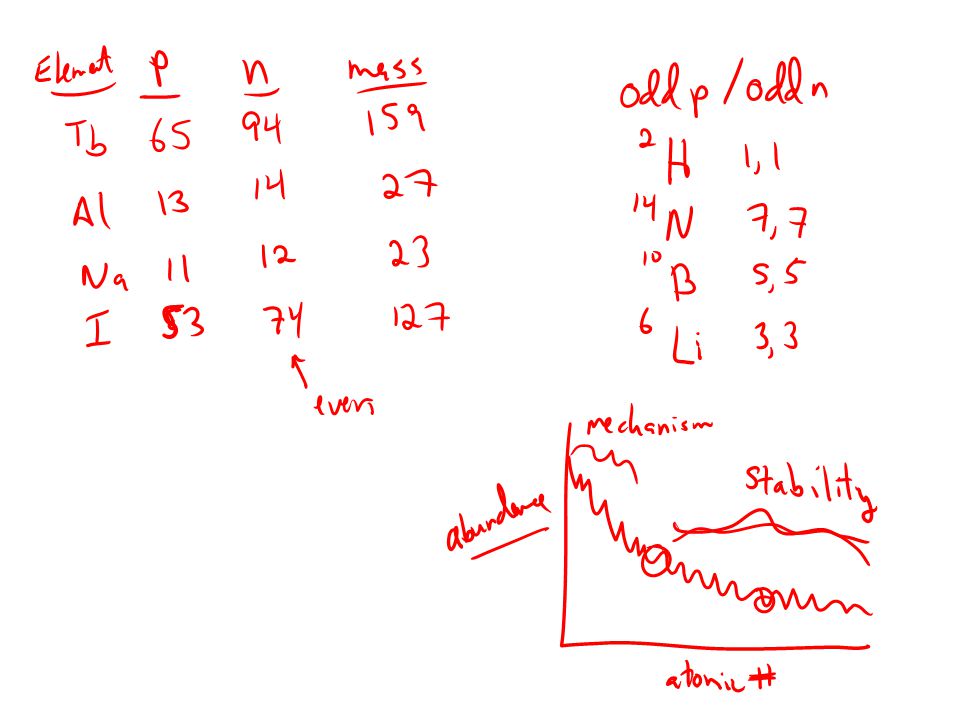 Element p n mass
Tb 65 94 159
Al 13 14 27
Na 11 12 23
I 53 74 127
evens
odd p / odd n
2 H 1,1
14 N 7,7
10 B 5,5
6 Li 3,3
mechanism
Stability
abundance
atomic #